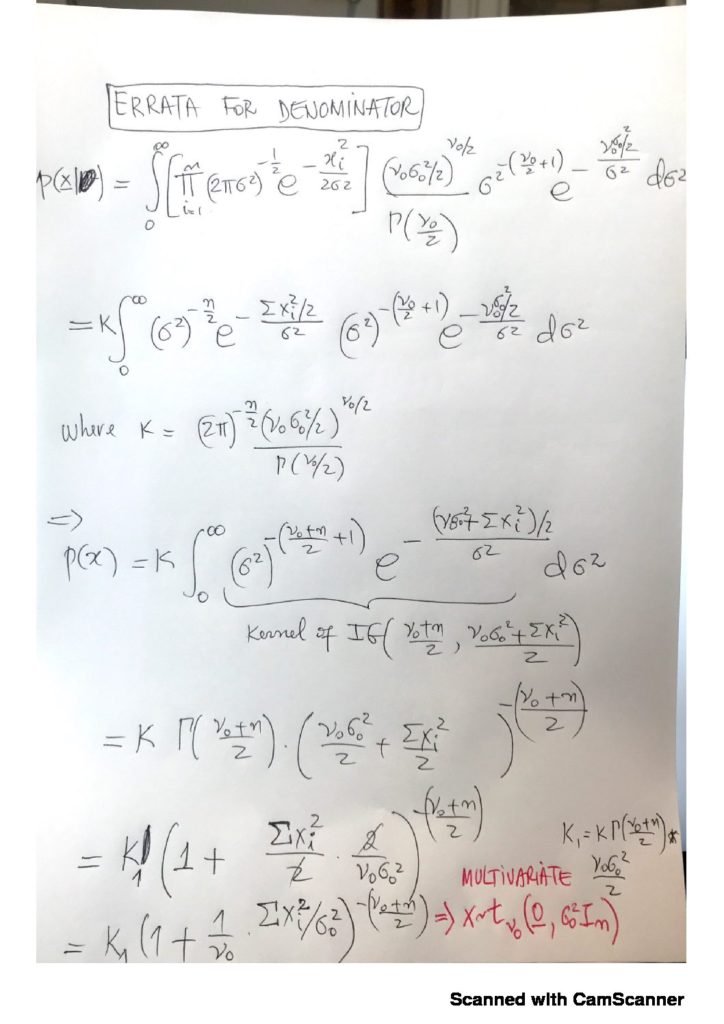 ERRATA FOR DENOMINATOR
p(x) = ∫₀^∞ [∏_{i=1}^{n} (2πσ²)^{-1/2} e^{-x_i²/2σ²}] (ν₀σ₀²/2)^{ν₀/2} / Γ(ν₀/2) σ²^{-(ν₀/2+1)} e^{-(ν₀σ₀²/2)/σ²} dσ²
= K∫₀^∞ (σ²)^{-n/2} e^{-(Σx_i²/2)/σ²} (σ²)^{-(ν₀/2+1)} e^{-(ν₀σ₀²/2)/σ²} dσ²
where K = (2π)^{-n/2} (ν₀σ₀²/2)^{ν₀/2} / Γ(ν₀/2)
=>
p(x) = K ∫₀^∞ (σ²)^{-((ν₀+n)/2+1)} e^{-((νσ₀²+Σx_i²)/2)/σ²} dσ²
Kernel of IG( (ν₀+n)/2 , (ν₀σ₀²+Σx_i²)/2 )
= K Γ((ν₀+n)/2) · (ν₀σ₀²/2 + Σx_i²/2)^{-((ν₀+n)/2)}
= K₁ (1 + Σx_i²/2 · 2/ν₀σ₀²)^{-((ν₀+n)/2)}
K₁ = K Γ((ν₀+n)/2) * ν₀σ₀²/2
= K₁ (1 + 1/ν₀ · Σx_i²/σ₀²)^{-((ν₀+n)/2)} => MULTIVARIATE x~t_{ν₀}(0, σ₀²I_n)
Scanned with CamScanner